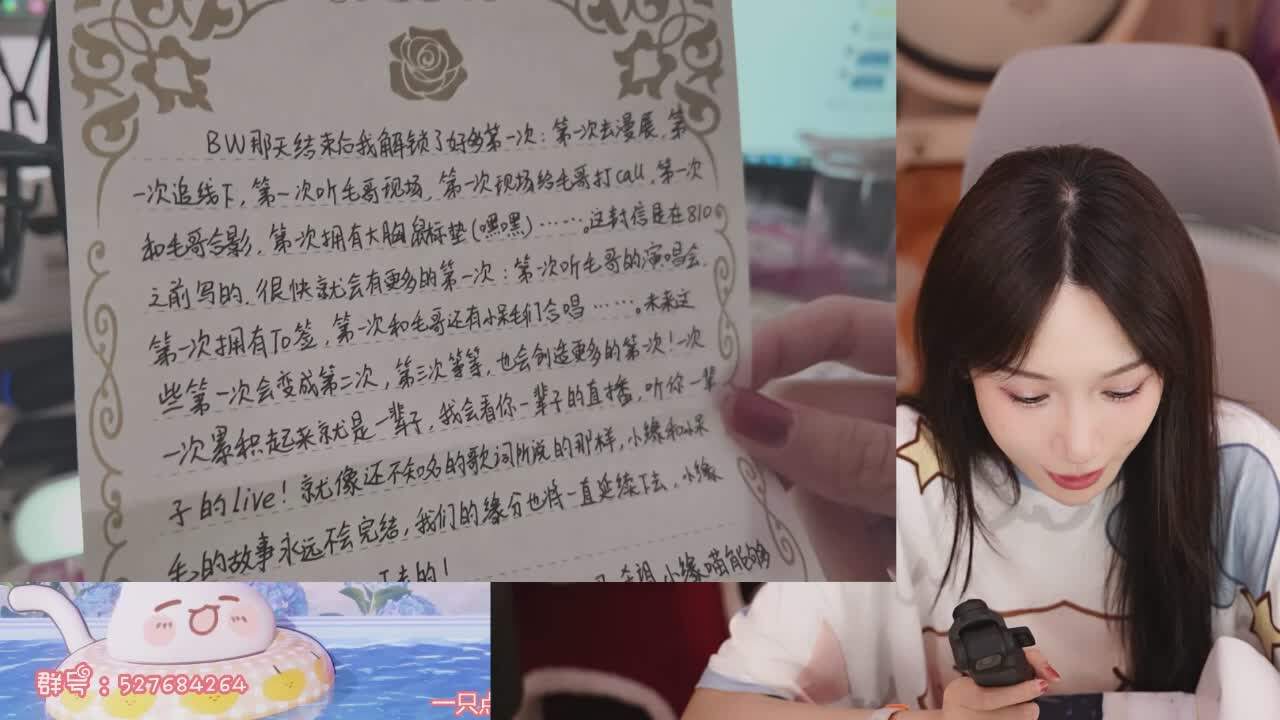 BW那天结束后我解锁了好多第一次：第一次去漫展，第
一次追线下，第一次听毛哥现场，第一次现场给毛哥打call，第一次
和毛哥合影，第一次拥有大胸鼠标垫(嘿嘿)……。这封信是在810
之前写的，很快就会有更多的第一次：第一次听毛哥的演唱会，
第一次拥有To签，第一次和毛哥还有小呆毛们合唱……。未来这
些第一次会变成第二次，第三次等等，也会创造更多的第一次！一次
一次累积起来就是一辈子，我会看你一辈子的直播，听你一辈
子的live！就像还不知名的歌词所说的那样，小缘和小呆
毛的故事永远不会完结，我们的缘分也将一直延续下去，小缘
下去的！
小缘喵能够
群号：527684264
一只点